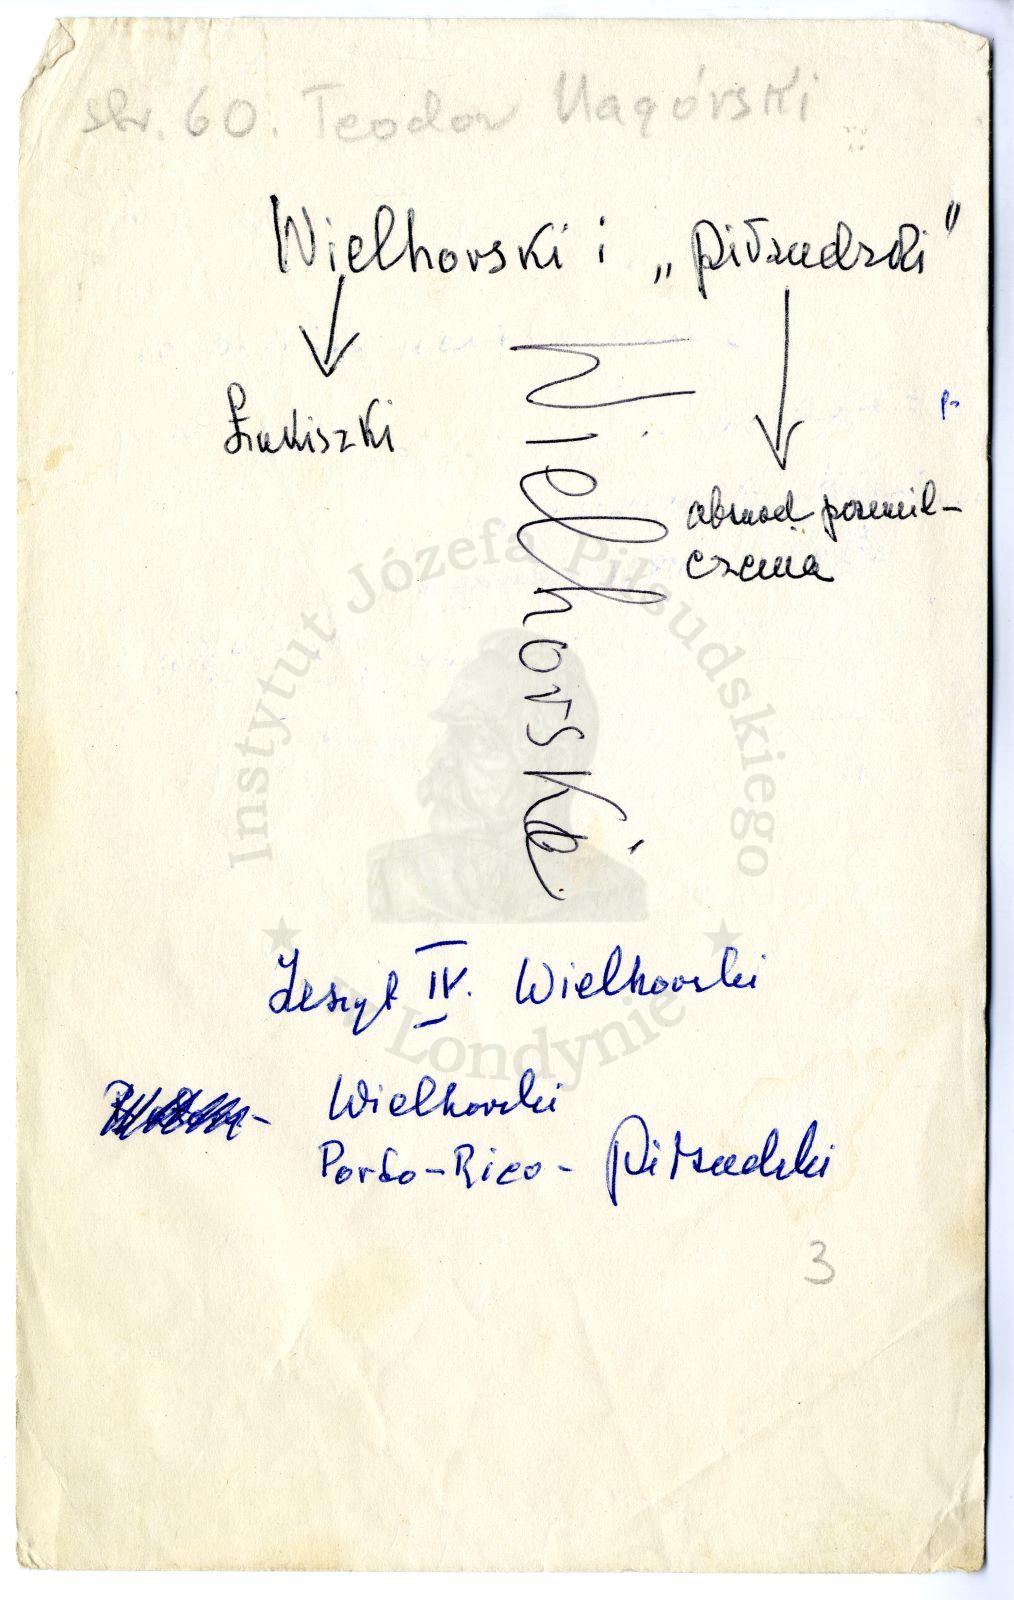 str. 60. Teodor Nagórski
Wielhorski i „Piłsudski”
Łukiszki
Wielhorski
Zeszyt IV. Wielhorski
Wielhorski
Porto-Rico - Piłsudski
3
Instytut Józefa Piłsudskiego
w Londynie